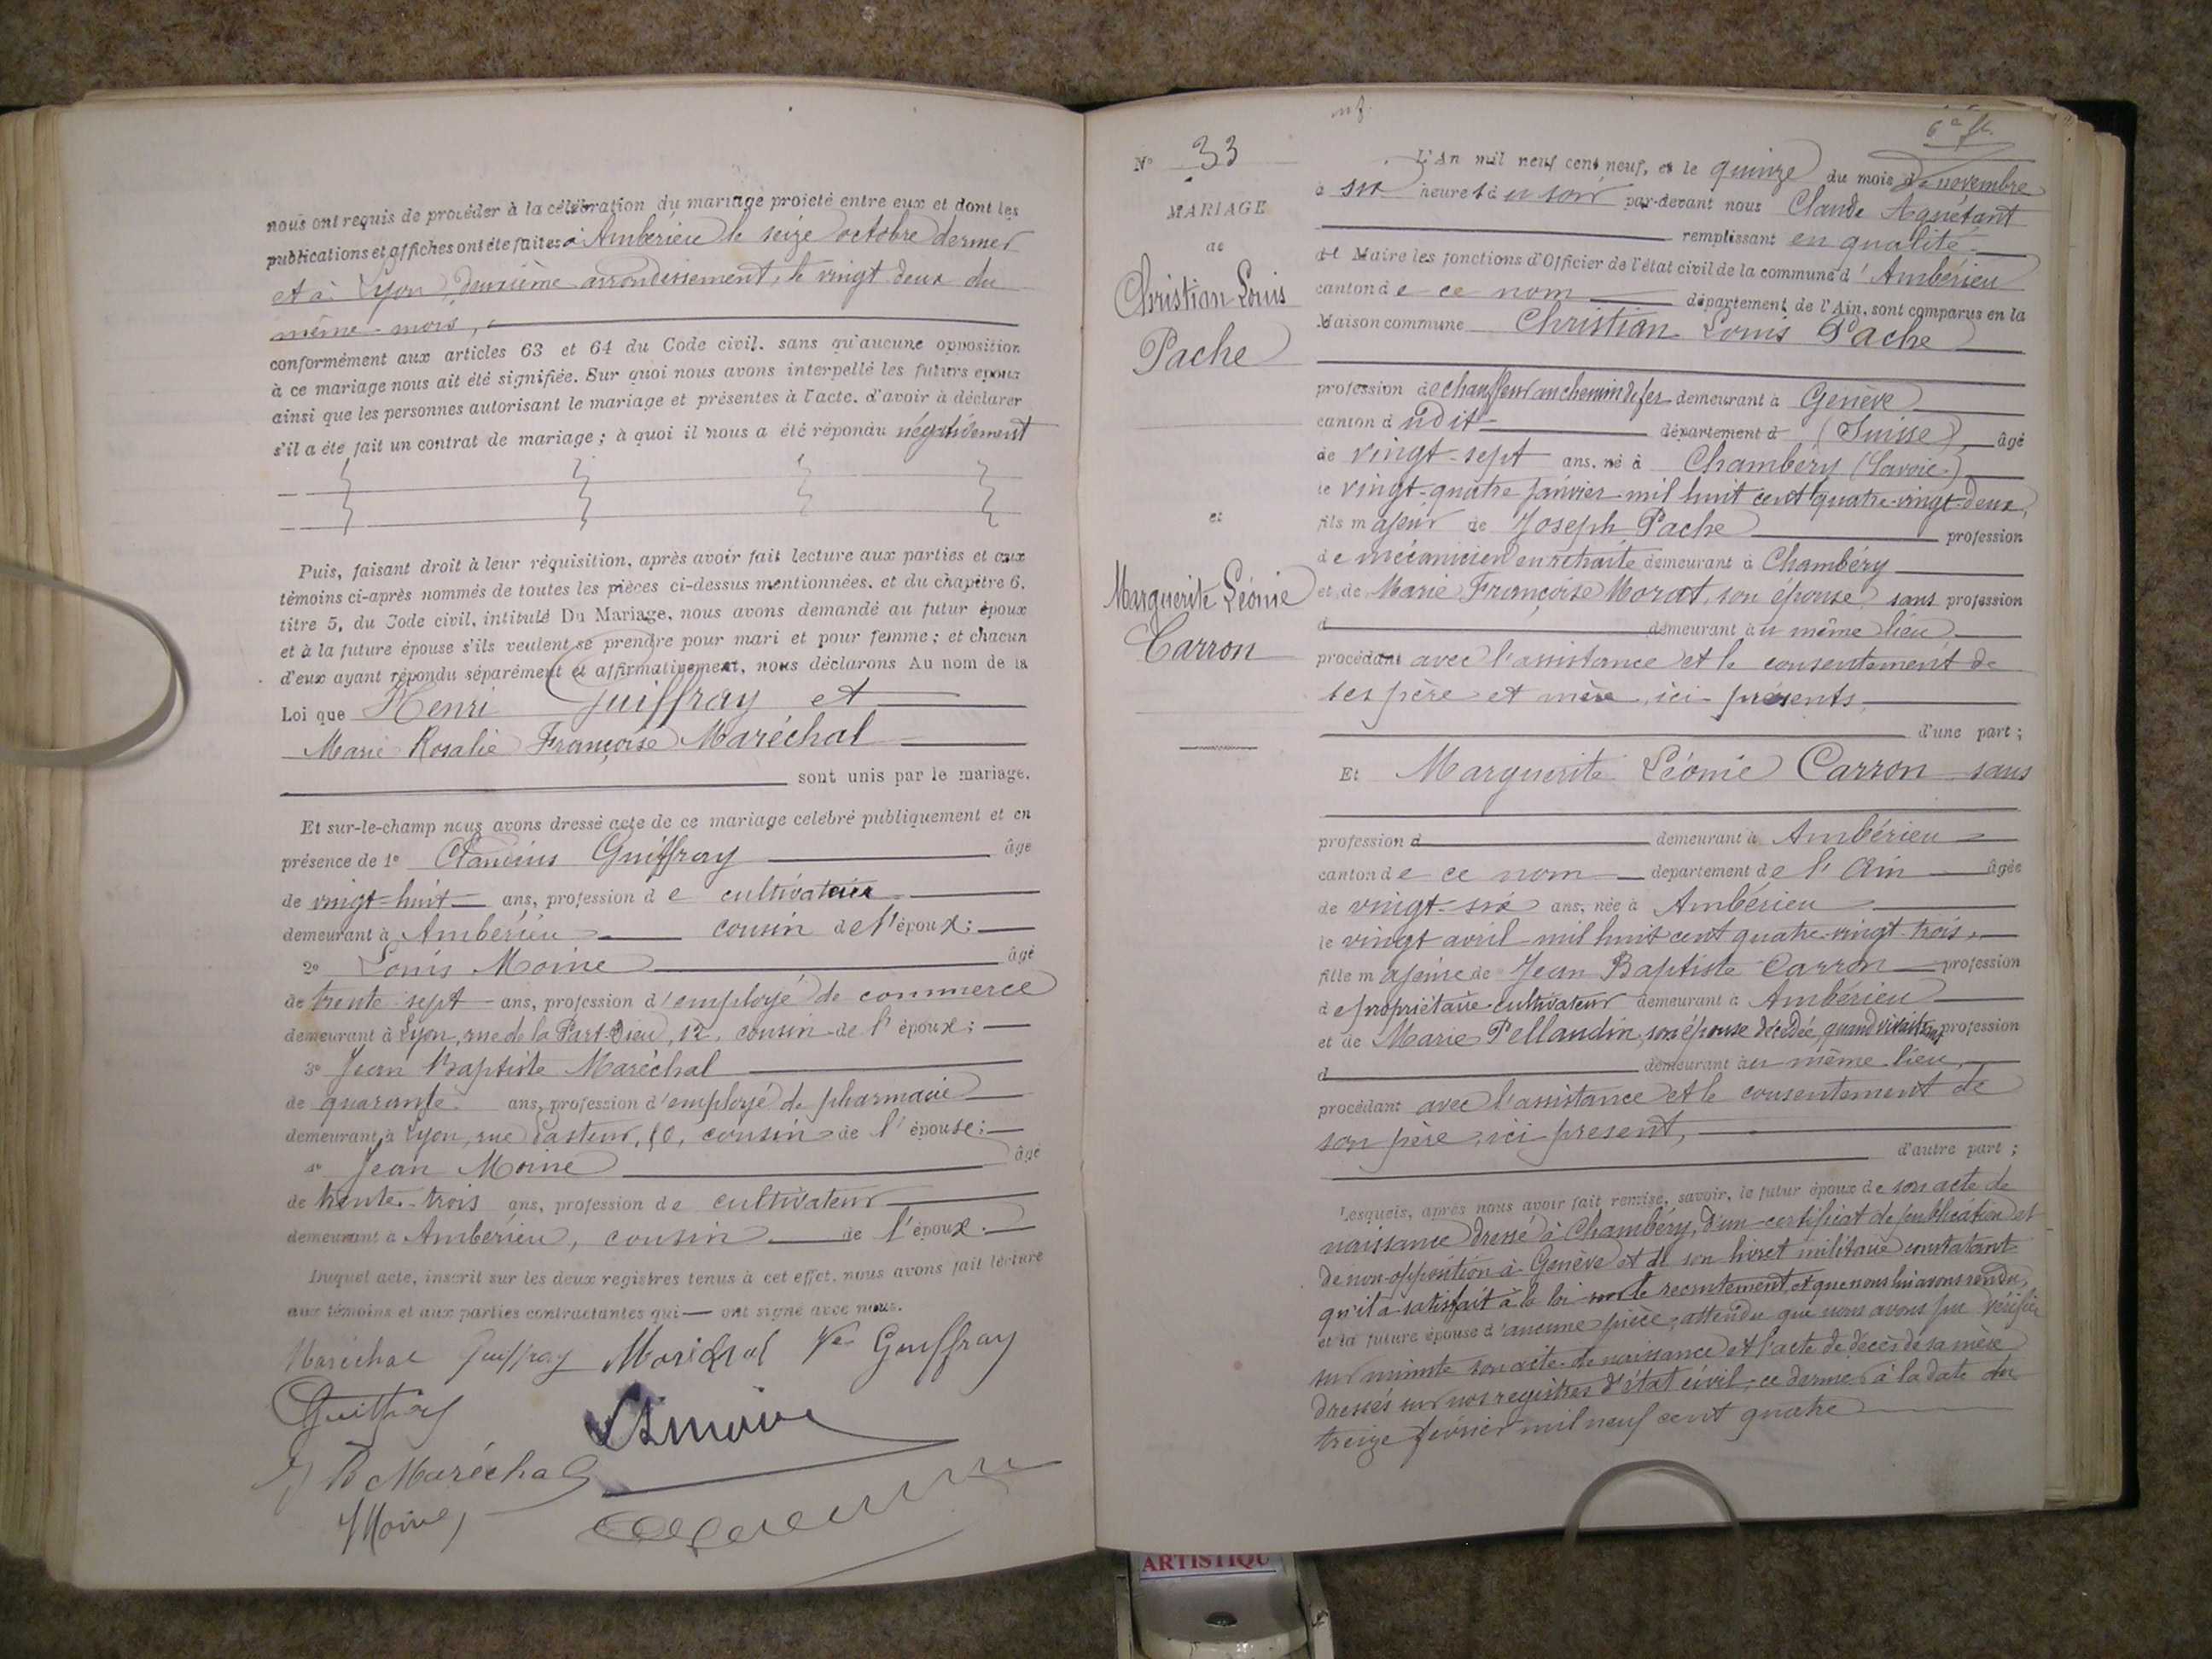 nous ont requis de procéder à la célébration du mariage projeté entre eux et dont les
publications et affiches ont été faites à Ambérieu le seize octobre dernier
et à Lyon, deuxième arrondissement, le vingt deux du
même mois,
conformément aux articles 63 et 64 du Code civil, sans qu'aucune opposition
à ce mariage nous ait été signifiée. Sur quoi nous avons interpellé les futurs époux
ainsi que les personnes autorisant le mariage et présentes à l'acte, d'avoir à déclarer
s'il a été fait un contrat de mariage ; à quoi il nous a été répondu négativement
Puis, faisant droit à leur réquisition, après avoir fait lecture aux parties et aux
témoins ci-après nommés de toutes les pièces ci-dessus mentionnées, et du chapitre 6,
titre 5, du Code civil, intitulé Du Mariage, nous avons demandé au futur époux
et à la future épouse s'ils veulent se prendre pour mari et pour femme ; et chacun
d'eux ayant répondu séparément et affirmativement, nous déclarons Au nom de la
Loi que Henri Guiffray et
Marie Rosalie Françoise Maréchal
sont unis par le mariage.
Et sur-le-champ nous avons dressé acte de ce mariage célébré publiquement et en
présence de 1º Claudius Guiffray âgé
de vingt-huit ans, profession de cultivateur
demeurant à Ambérieu cousin de l'époux ;
2º Louis Moine âgé
de trente sept ans, profession d'employé de commerce
demeurant à Lyon, rue de la Part-Dieu, 12, cousin de l'époux ;
3º Jean Baptiste Maréchal
de quarante ans, profession d'employé de pharmacie
demeurant à Lyon, rue Pasteur, 10, cousin de l'épouse ;
4º Jean Moine âgé
de trente-trois ans, profession de cultivateur
demeurant à Ambérieu, cousin de l'époux.
Duquel acte, inscrit sur les deux registres tenus à cet effet, nous avons fait lecture
aux témoins et aux parties contractantes qui ont signé avec nous.
Maréchal Guiffray Maréchal Ve Guiffray
Guiffray
J B Maréchal
J Moine
6e fl.
Nº 33
MARIAGE
de
Christian Louis
Pache
et
Marguerite Léonie
Carron
L'An mil neuf cent neuf, et le quinze du mois de novembre
à six heures du soir par-devant nous Claude Aguétant
remplissant en qualité
de Maire les fonctions d'Officier de l'état civil de la commune d'Ambérieu
canton de ce nom département de l'Ain, sont comparus en la
Maison commune Christian Louis Pache
profession de chauffeur au chemin de fer demeurant à Genève
canton dudit département d (Suisse), âgé
de vingt-sept ans, né à Chambéry (Savoie)
le vingt-quatre janvier mil huit cent quatre-vingt-deux,
fils majeur de Joseph Pache profession
de mécanicien en retraite demeurant à Chambéry
et de Marie Françoise Morat, son épouse, sans profession
d demeurant au même lieu
procédant avec l'assistance et le consentement de
ses père et mère, ici présents,
d'une part ;
Et Marguerite Léonie Carron sans
profession d demeurant à Ambérieu
canton de ce nom département de l'Ain âgée
de vingt-six ans, née à Ambérieu
le vingt avril mil huit cent quatre-vingt trois,
fille majeure de Jean Baptiste Carron profession
de propriétaire cultivateur demeurant à Ambérieu
et de Marie Pellaudin, son épouse décédée, quand vivait sans profession
d demeurant au même lieu,
procédant avec l'assistance et le consentement de
son père, ici présent,
d'autre part ;
Lesquels, après nous avoir fait remise, savoir, le futur époux de son acte de
naissance dressé à Chambéry, d'un certificat de publication et
de non-opposition à Genève et de son livret militaire constatant
qu'il a satisfait à la loi sur le recrutement, et que nous lui avons rendu,
et la future épouse d'aucune pièce, attendu que nous avons pu vérifier
sur minute son acte de naissance et l'acte de décès de sa mère
dressés sur nos registres d'état civil, ce dernier à la date du
treize février mil neuf cent quatre
ARTISTIQU